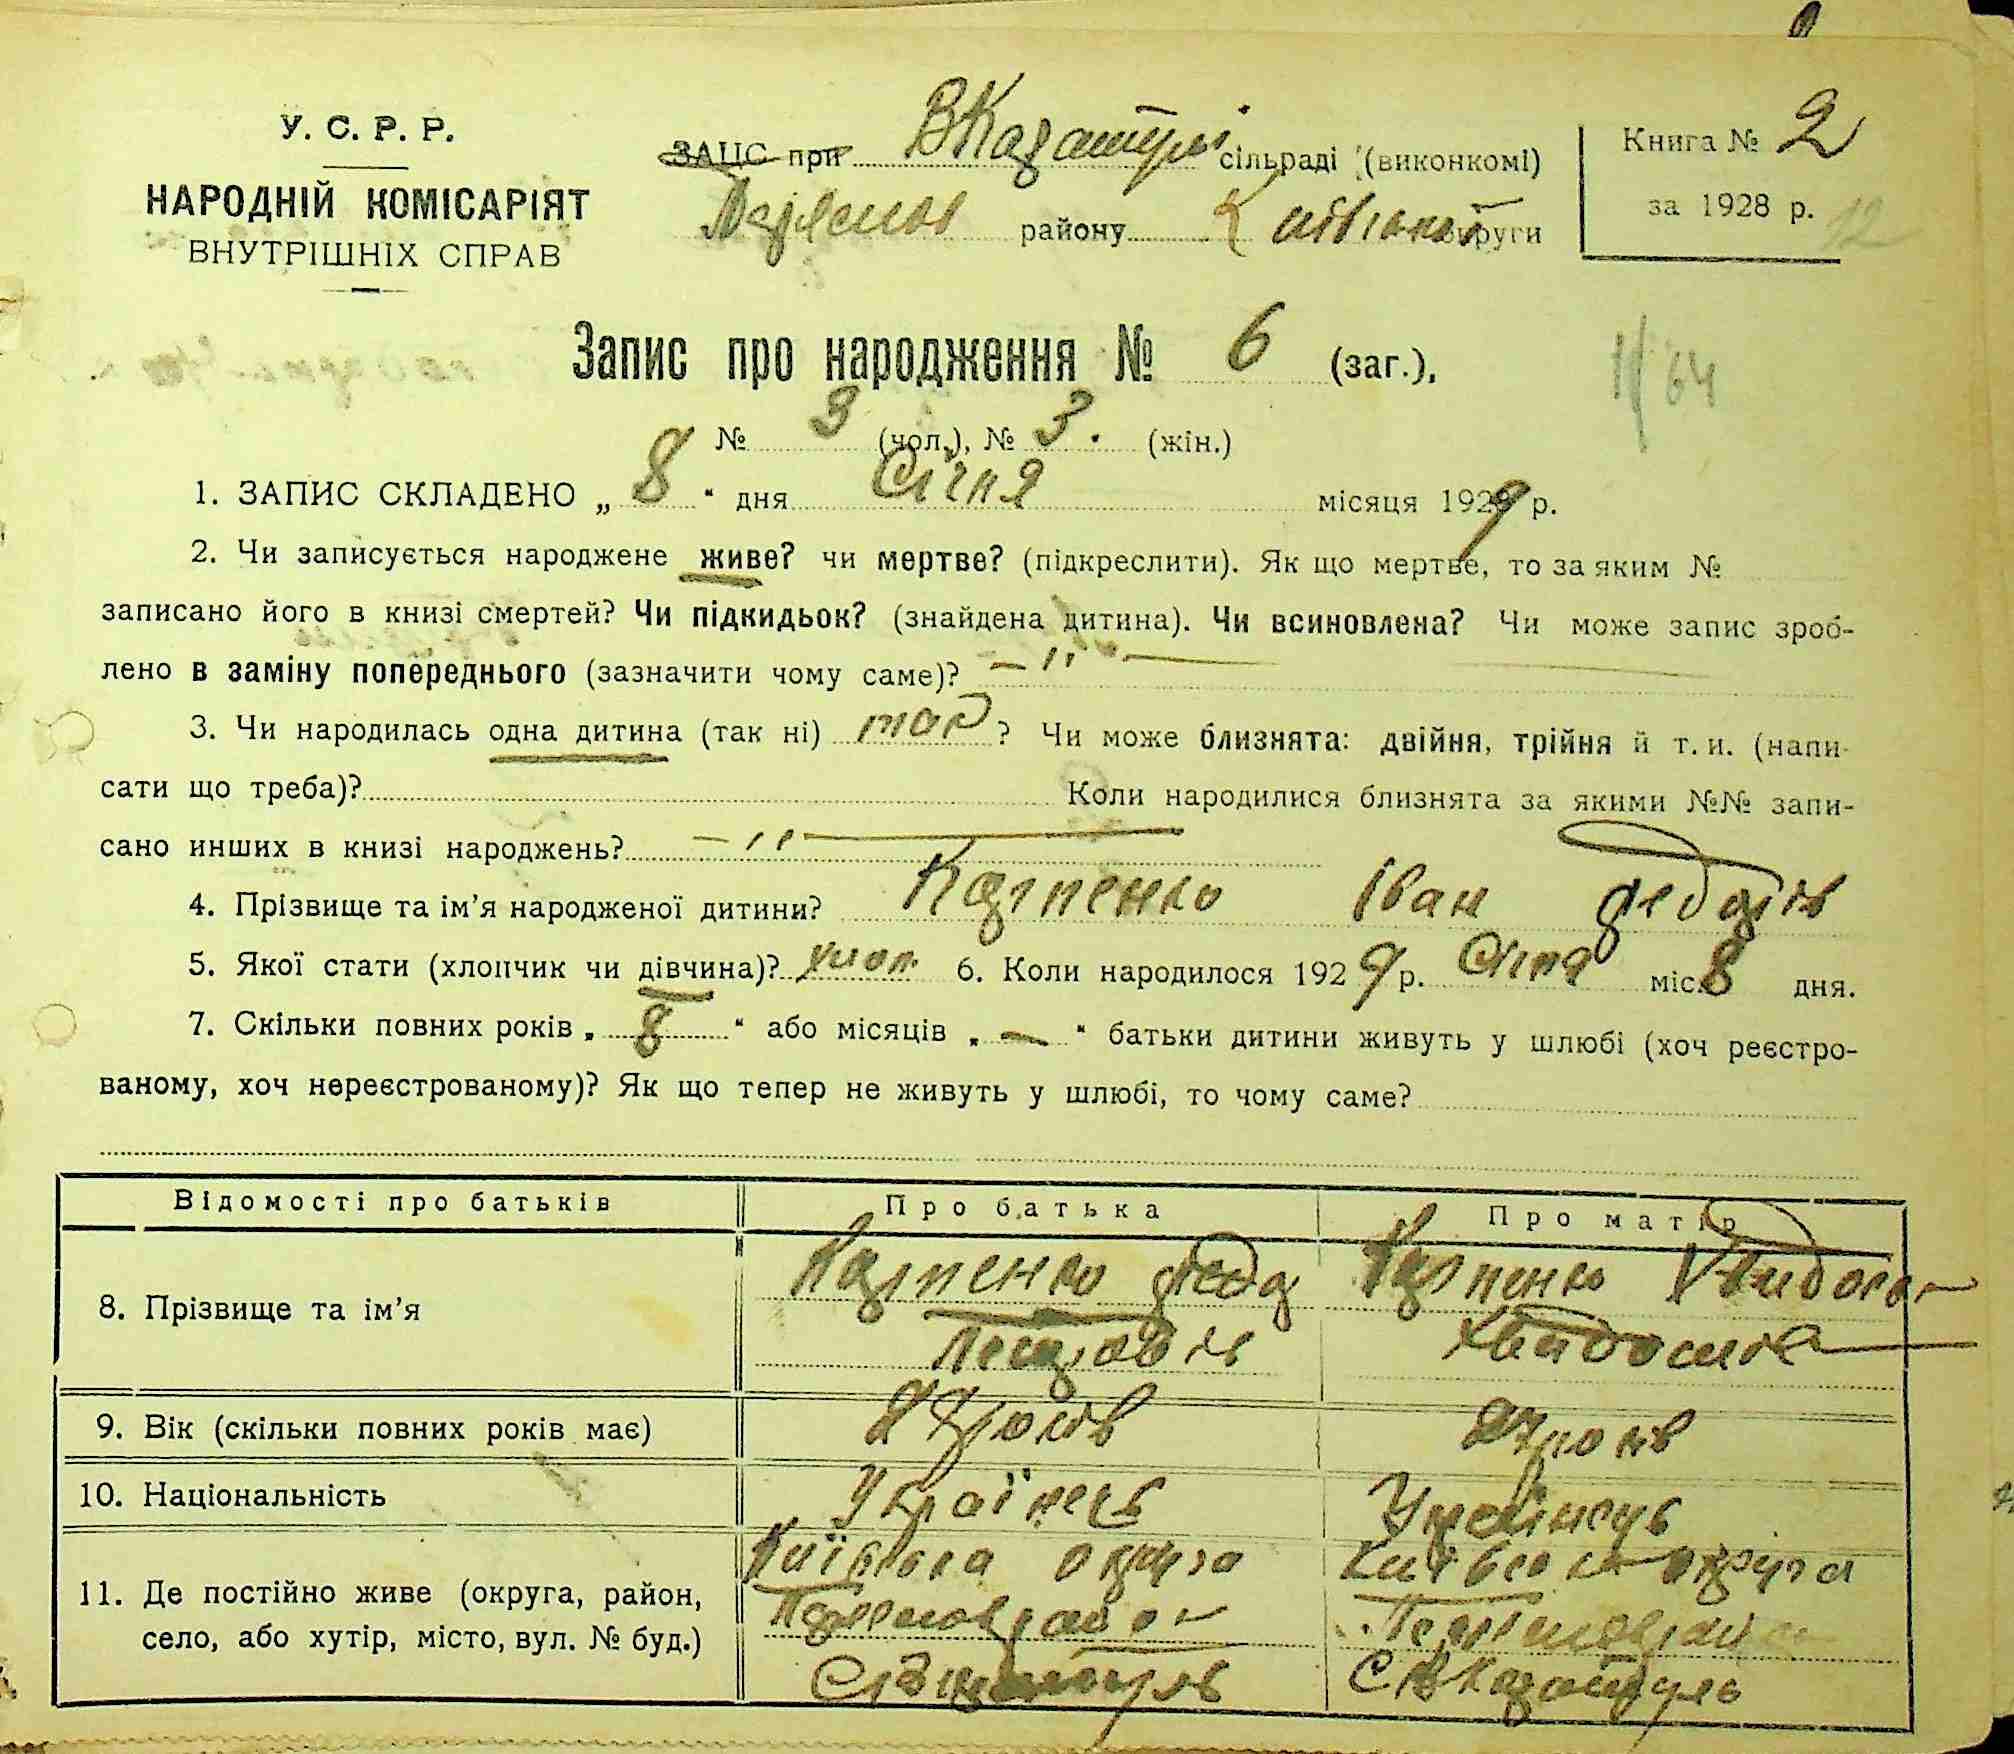 У. С. Р. Р.
НАРОДНІЙ КОМІСАРІЯТ
ВНУТРІШНІХ СПРАВ
ЗАЦС при ВКаратулі сільраді (виконкомі)
району Київської округи
Книга № 2
за 1928 р. 12
Запис про народження № 6 (заг.),
11/64
№ 3 (чол.), № 3. (жін.)
1. ЗАПИС СКЛАДЕНО „ 8 “ дня Січня місяця 1929 р.
2. Чи записується народжене живе? чи мертве? (підкреслити). Як що мертве, то за яким №
записано його в книзі смертей? Чи підкидьок? (знайдена дитина). Чи всиновлена? Чи може запис зроб-
лено в заміну попереднього (зазначити чому саме)? — " —
3. Чи народилась одна дитина (так ні) так ? Чи може близнята: двійня, трійня й т. и. (напи-
сати що треба)? Коли народилися близнята за якими №№ запи-
сано инших в книзі народжень? — " —
4. Прізвище та ім’я народженої дитини? Карпенко Іван Федорів
5. Якої стати (хлопчик чи дівчина)? хлоп. 6. Коли народилося 1929 р. Січня міс. 8 дня.
7. Скільки повних років „ 8 “ або місяців „ — “ батьки дитини живуть у шлюбі (хоч реєстро-
ваному, хоч нереєстрованому)? Як що тепер не живуть у шлюбі, то чому саме?
Відомості про батьків Про батька Про матір
8. Прізвище та ім’я Карпенко Федор Карпенко
Петрович
9. Вік (скільки повних років має) 27 років 27 років
10. Національність Українець Українець
11. Де постійно живе (округа, район,
село, або хутір, місто, вул. № буд.)
Київська округа Київська округа
С ВКаратуль